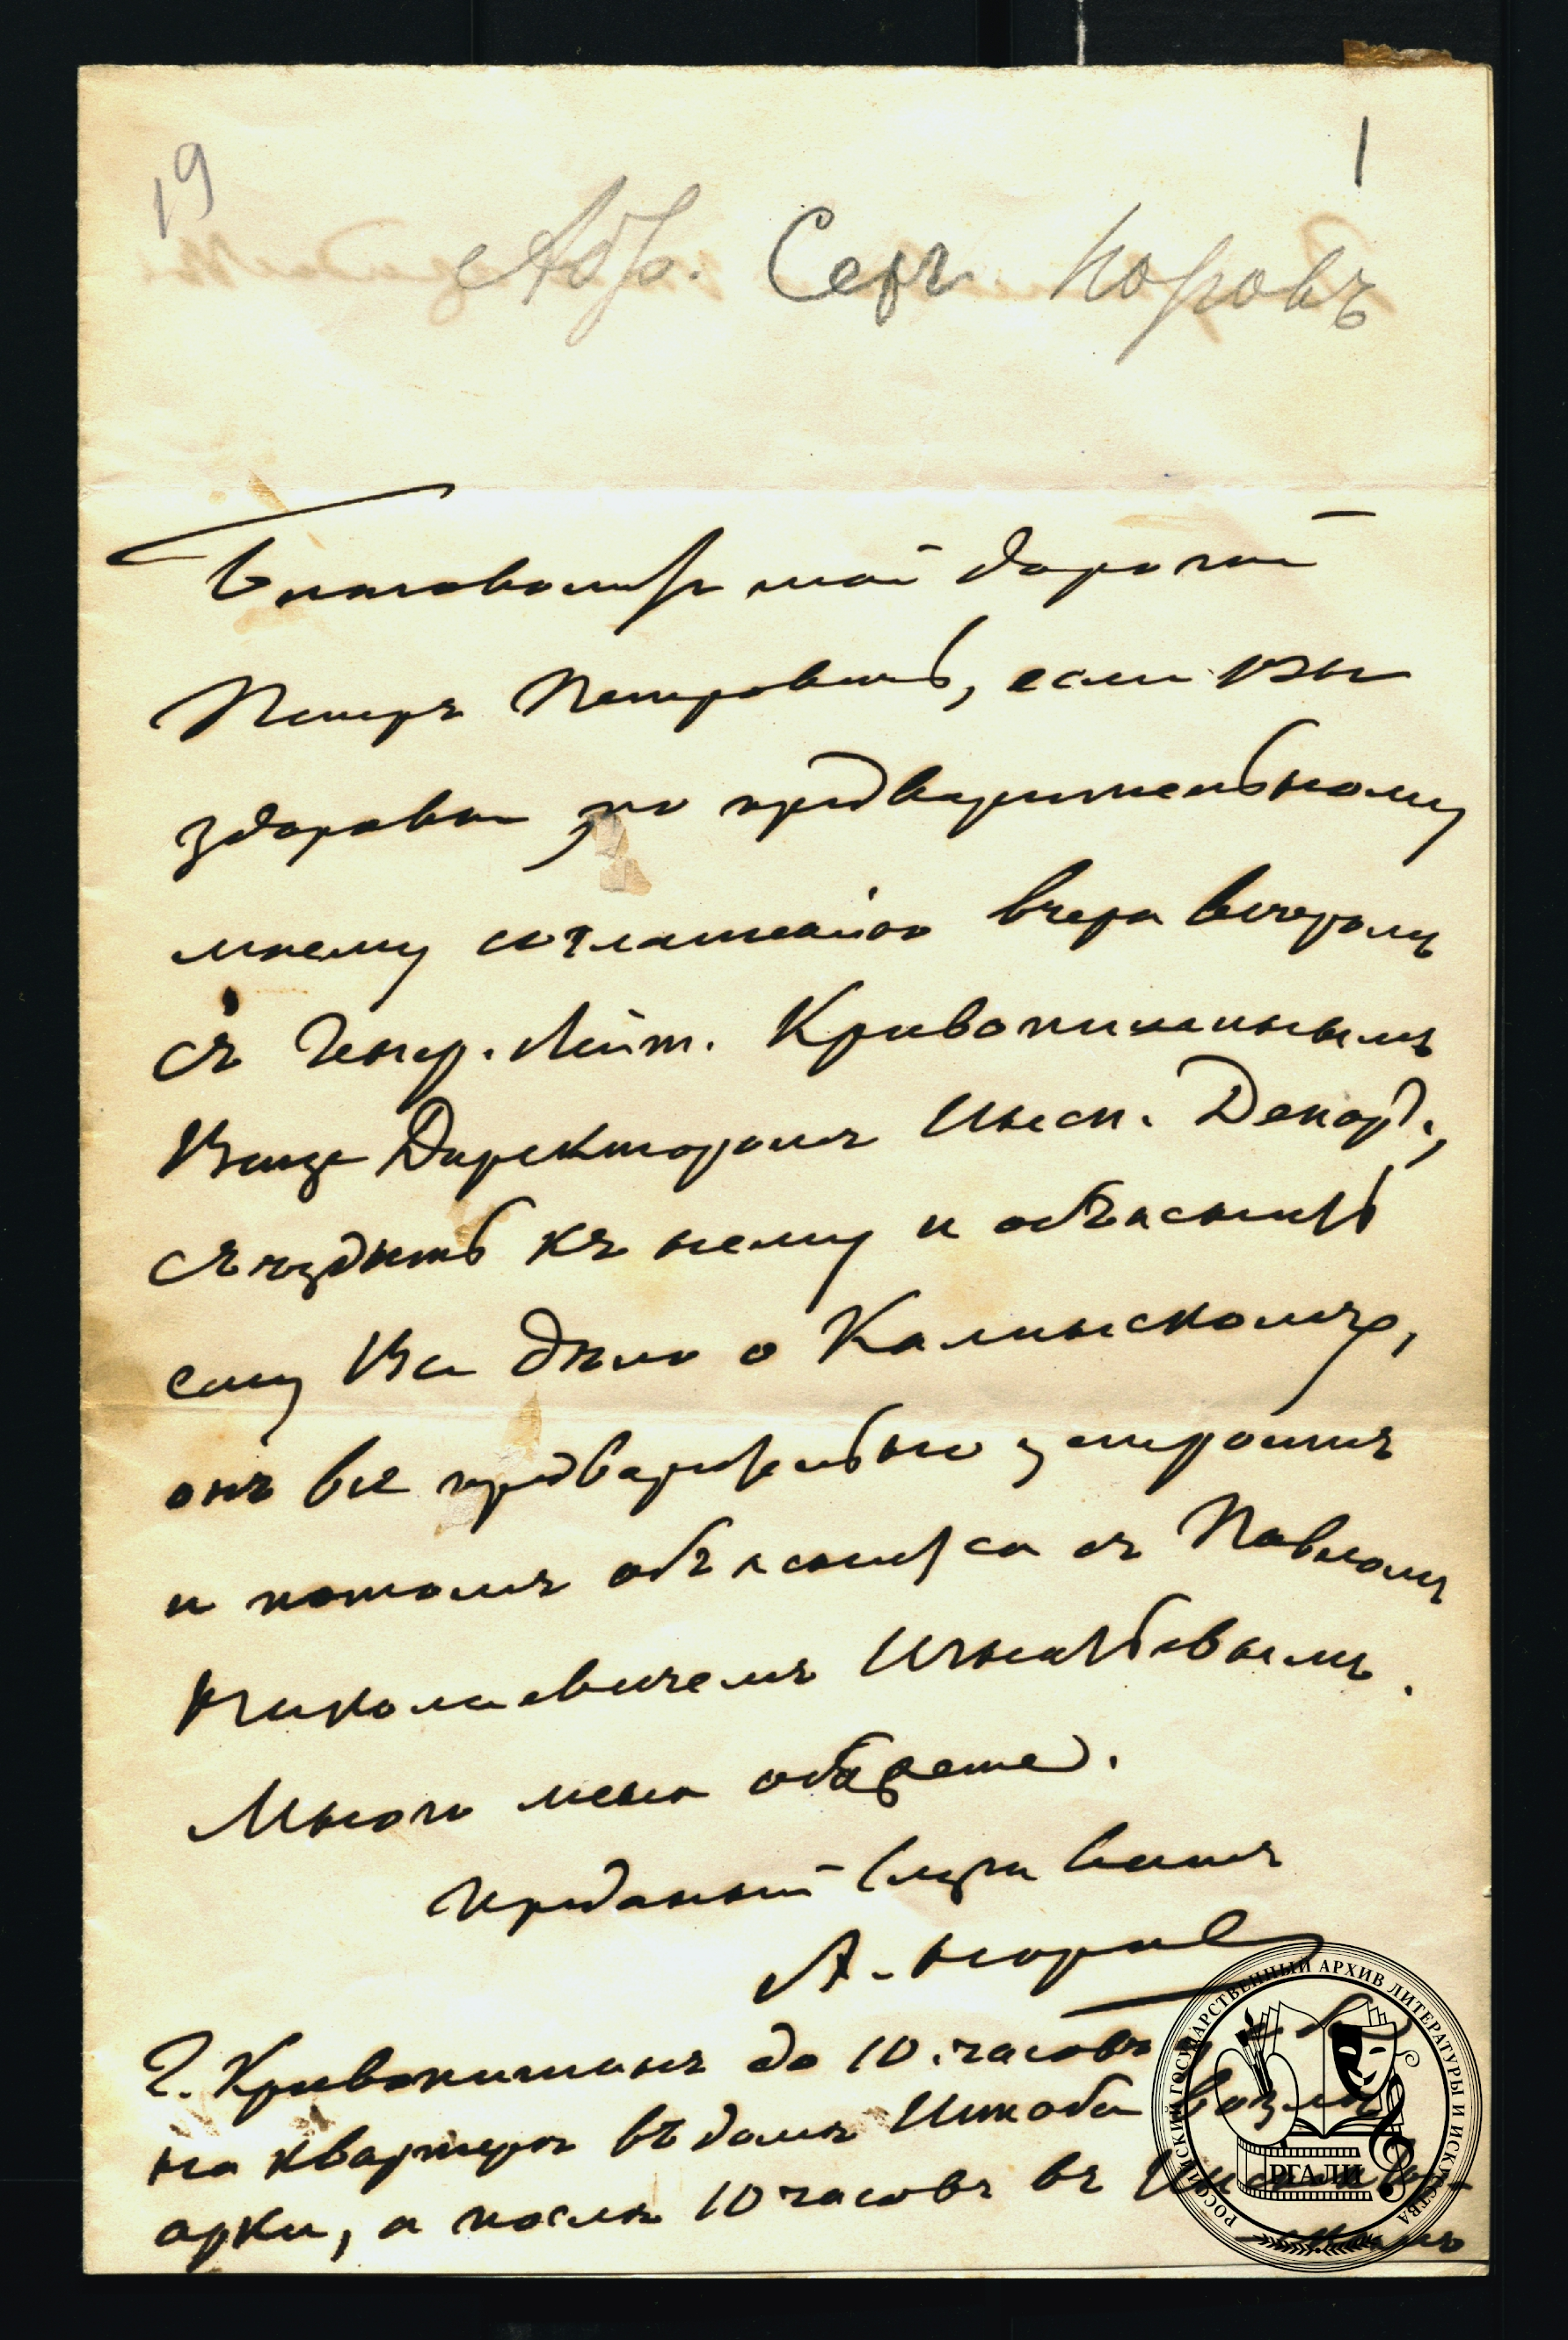 19
1
Абр. Серг. Норовъ
Благоволите мой дорогой
Петръ Петровичь, если Вы
здоровы, по предварительному
моему соглашенію вчера вечеромъ
съ Генер. Лейт. Кривопишинымъ
Вице Директоромъ Инсп. Депар.,
съездить къ нему и объяснить
ему Все дѣло о Калинскомъ,
онъ все предварительно устроитъ
и потомъ объяснится съ Павломъ
Николаевичемъ Игнатьевымъ.
Много меня обяжете.
Преданный слуга Вашъ
А. Норовъ
Г. Кривопишинъ до 10. часовъ
на квартирѣ въ домѣ возлѣ
арки, а послѣ 10 часовъ въ
РОССИЙСКИЙ ГОСУДАРСТВЕННЫЙ АРХИВ ЛИТЕРАТУРЫ И ИСКУССТВА
РГАЛИ